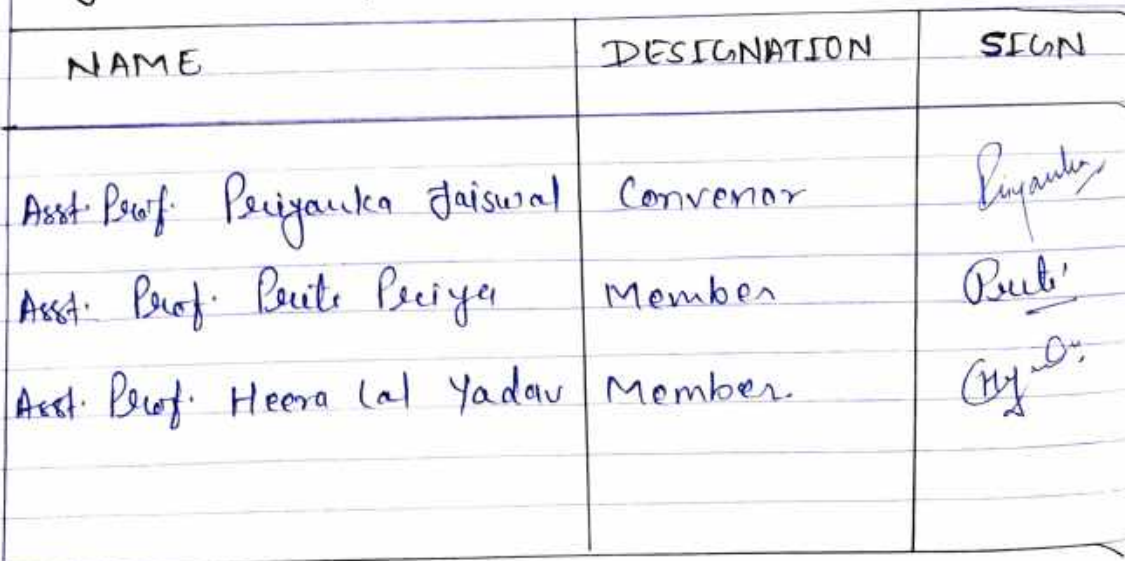 NAME DESIGNATION SIGN
Asst. Prof. Priyanka Jaiswal Convenor Priyanka
Asst. Prof. Priti Priya Member Priti
Asst. Prof. Heera Lal Yadav Member.